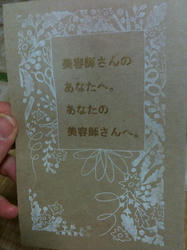 美容師さんの
あなたへ。
あなたの
美容師さんへ。